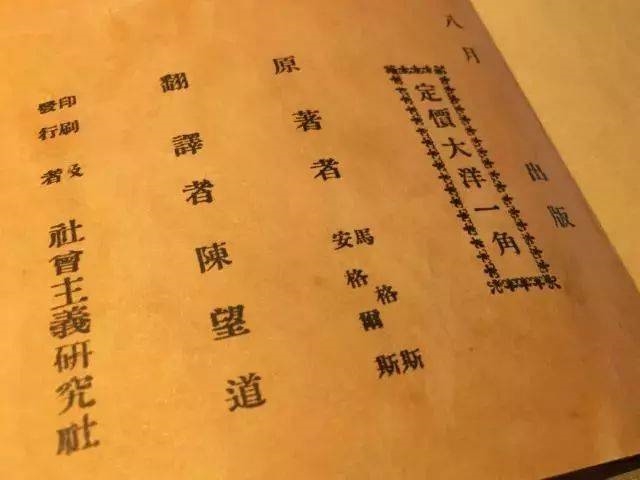 八月 出版
定價大洋一角
原著者
馬格斯
安格爾斯
翻譯者 陳望道
印刷及
發行者
社會主義研究社